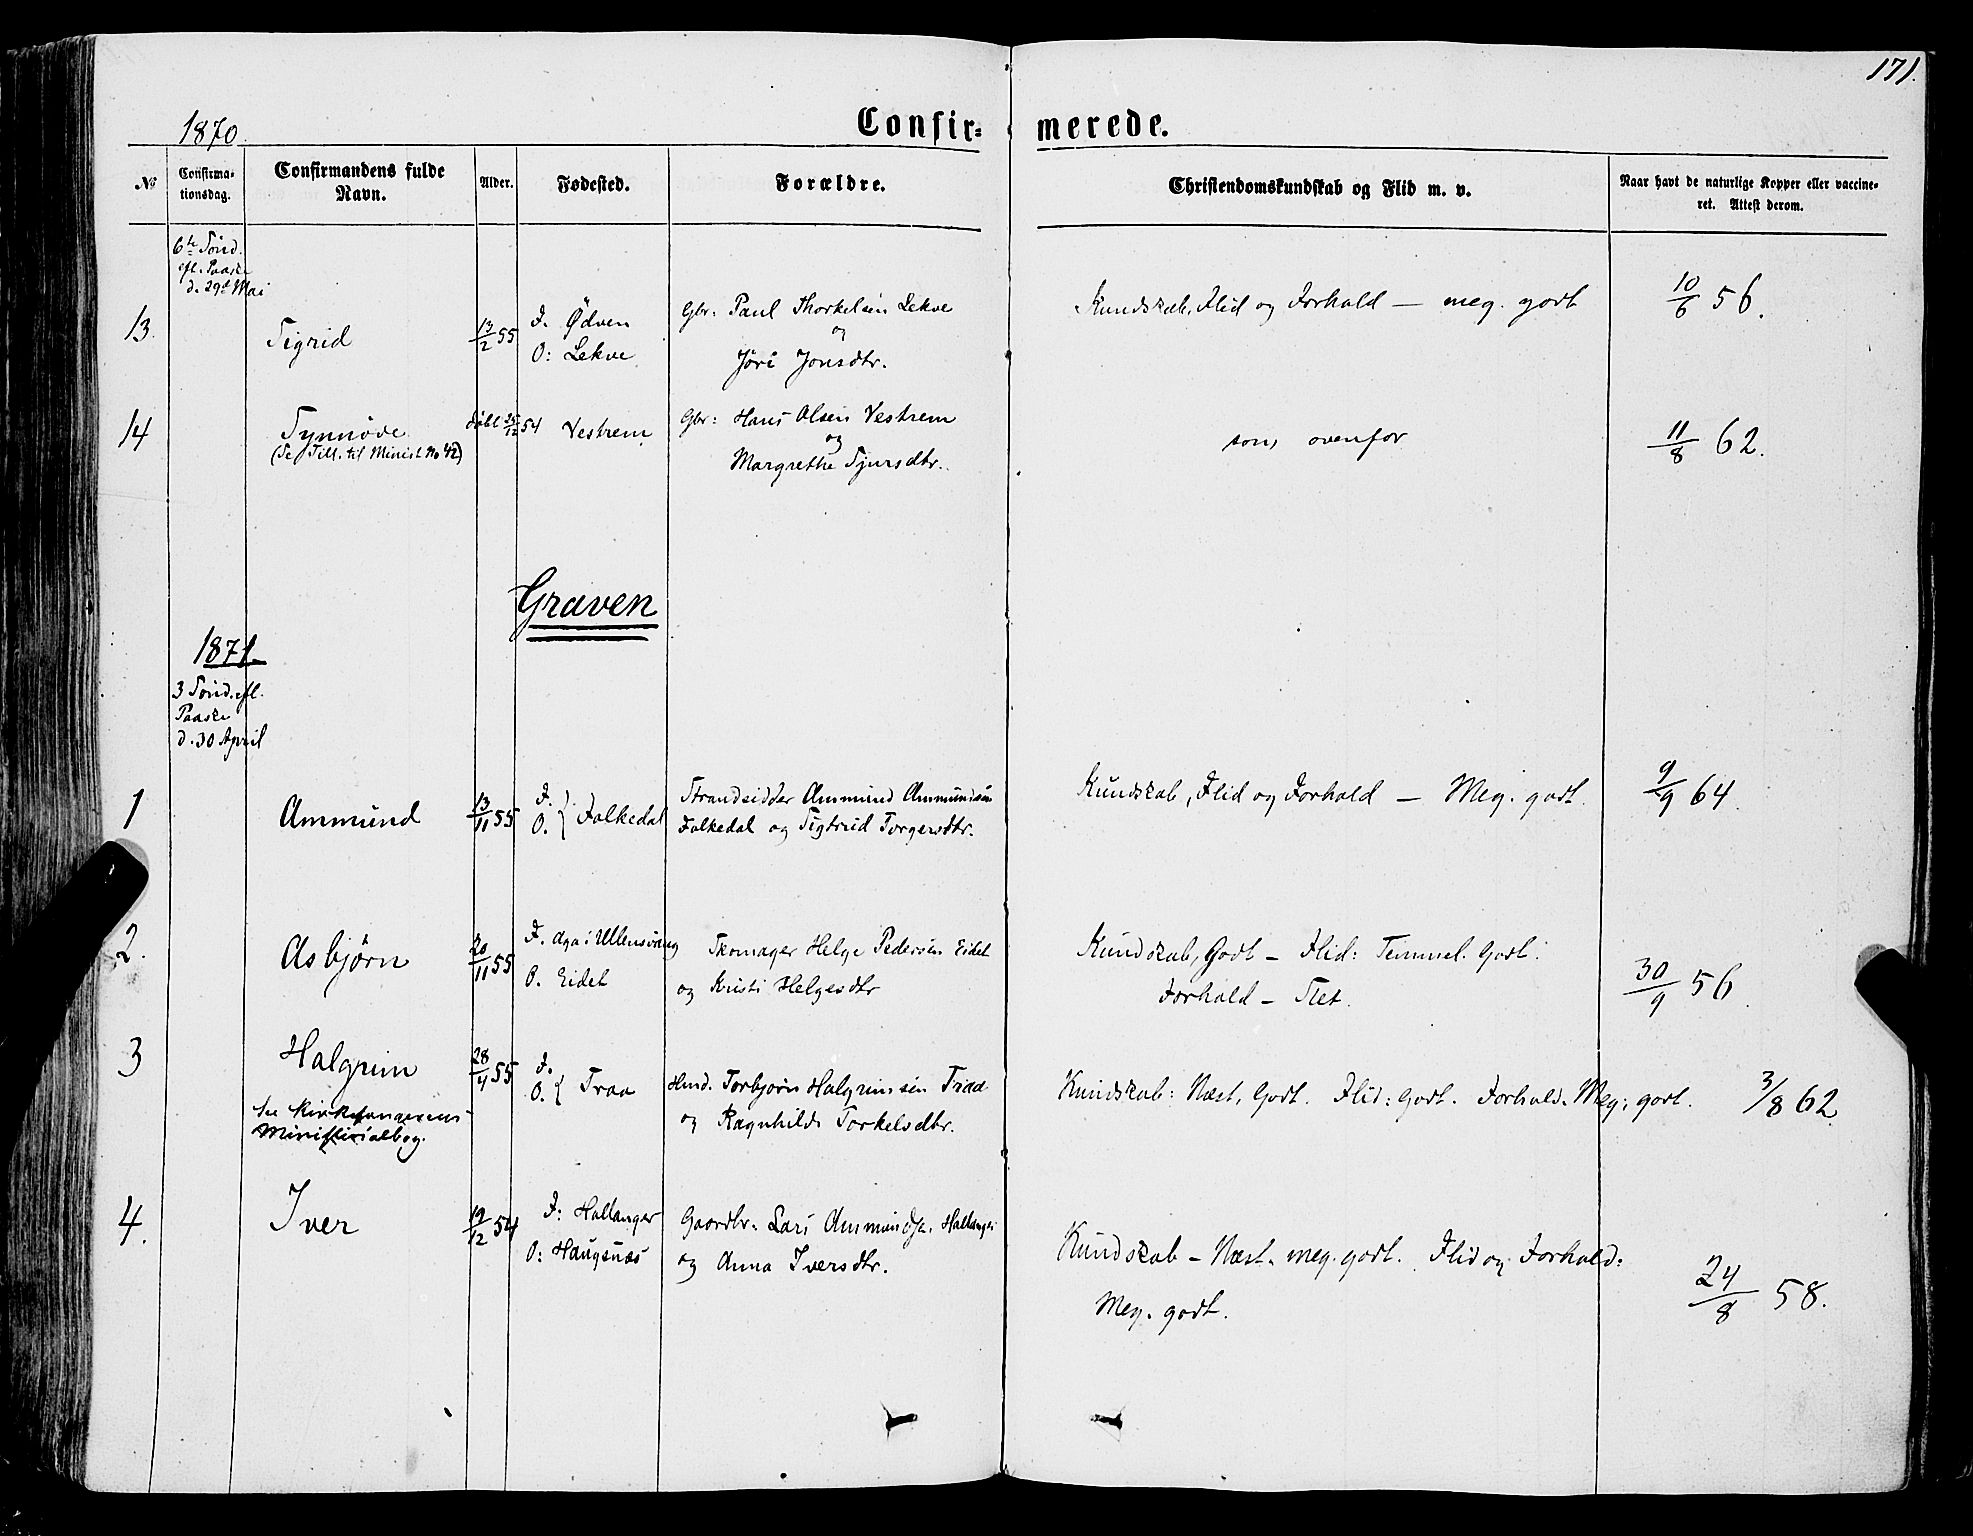 171.
1870
Confir- merede.
No
Confirma-
tionsdag.
Confirmandens fulde
Navn.
Alder.
Fødested.
Forældre.
Christendomskundskab og Flid m. v.
Naar havt de naturlige Kopper eller vaccine-
ret. Attest derom.
6te Sønd.
eft. Paaske
d. 29de Mai
13.
Sigrid
13/2 55
F. Ødven
O: Lekve
Gbr: Paul Thorkelsen Lekve
og
Jöri Jonsdtr.
Kundskab, Flid og Forhold — meg. godt
10/6 56.
14
Synnöve
(Se Till. til Minist No 42)
döbt 26/12 54
Vestrem
Gbr: Hans Olsen Vestrem
og
Margrethe Sjursdtr.
som ovenfor
11/8 62.
Graven
1871.
3 Sønd. eft.
Paaske
d. 30 April
1
Ammund
13/11 55
F.
O. } Folkedal
Strandsidder Ammund Ammundsen
Folkedal og Sigtrud Torgersdtr.
Kundskab, Flid og Forhold — Meg. godt.
9/9 64.
2.
Asbjørn
20/11 55
F. Aga i Ullensvang
O. Eidet
Skomager Helge Pedersen Eidet
og Kristi Helgesdtr
Kundskab, Godt — Flid: Temmel. Godt.
Forhold — Slet.
30/9 56.
3
Halgrim
28/4 55
F.
O. { Traa
Hmd. Torbjørn Halgrimsen Traa
og Ragnhild Torkelsdtr.
Kundskab: Næst, Godt. Flid: Godt. Forhold. Meg. godt.
3/8 62.
se Kirkesangerens
Ministerialbog.
4.
Iver
19/12 54
F: Hallanger
O: Haugsnæs
Gaardbr. Lars Ammundsn. Hallanger
og Anna Iversdtr.
Kundskab — Næst. meg. godt. Flid og Forhold:
Meg. godt.
24/8 58.